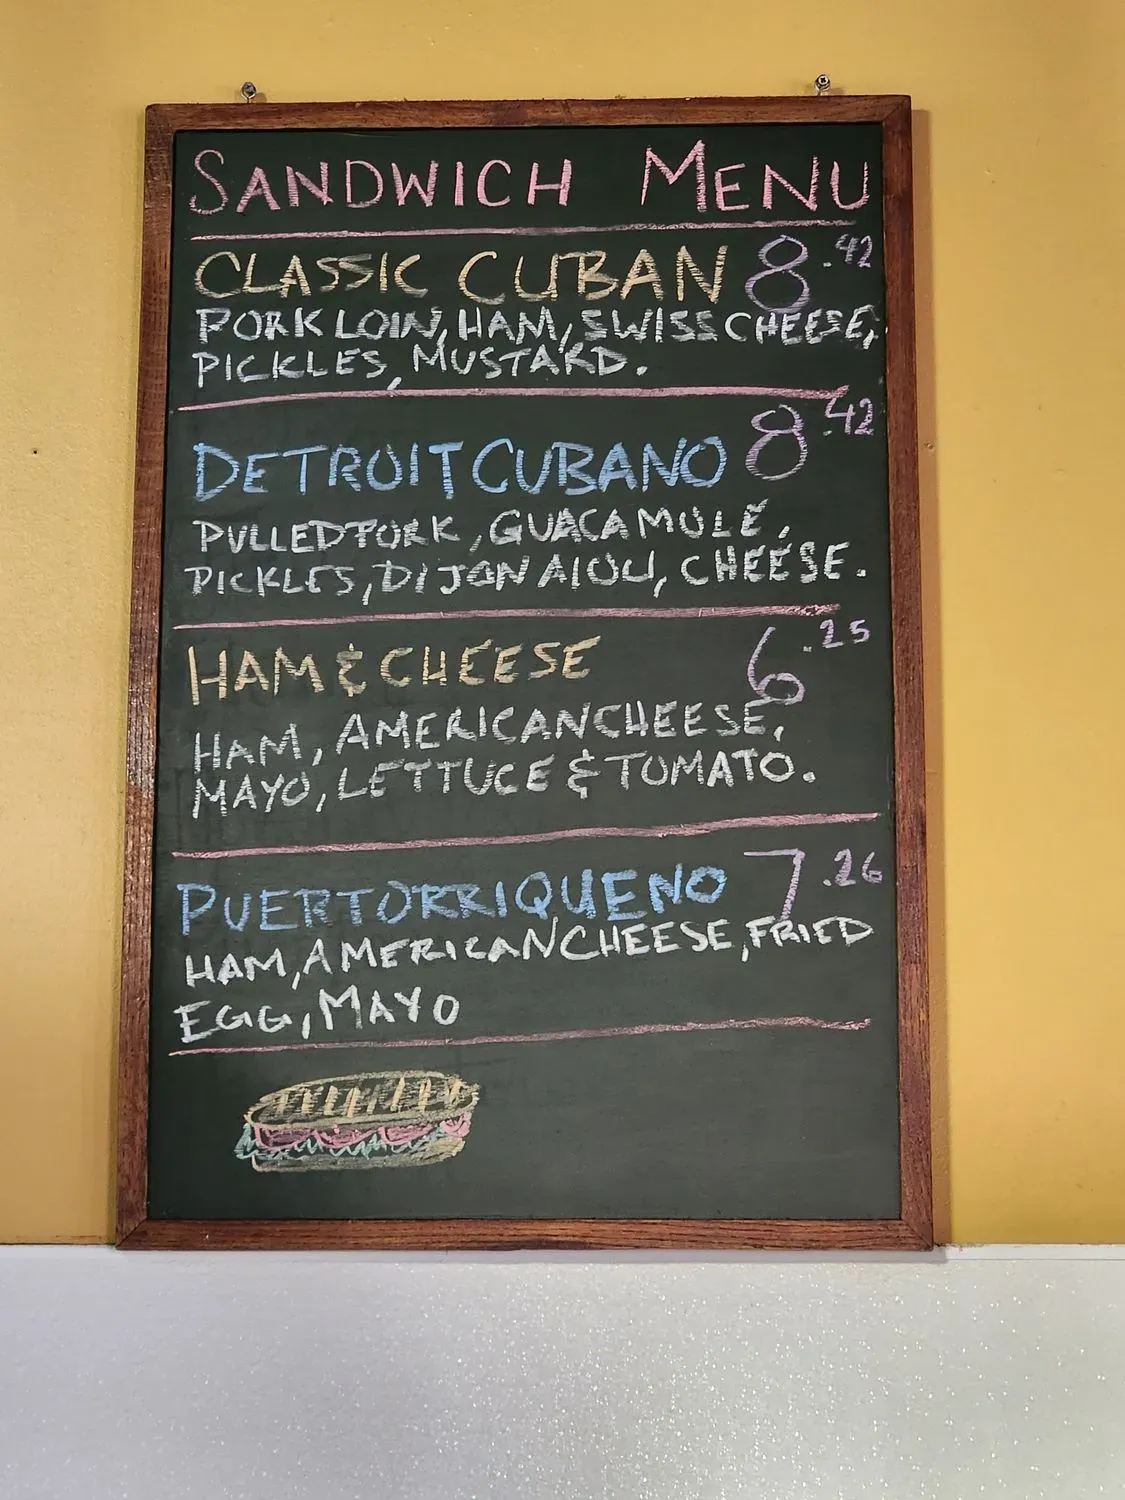 SANDWICH MENU
CLASSIC CUBAN 8.42
PORK LOIN, HAM, SWISS CHEESE,
PICKLES, MUSTARD.
DETROIT CUBANO 8.42
PULLED PORK, GUACAMOLE,
PICKLES, DIJON AIOLI, CHEESE.
HAM & CHEESE 6.25
HAM, AMERICAN CHEESE,
MAYO, LETTUCE & TOMATO.
PUERTORRIQUENO 7.26
HAM, AMERICAN CHEESE, FRIED
EGG, MAYO